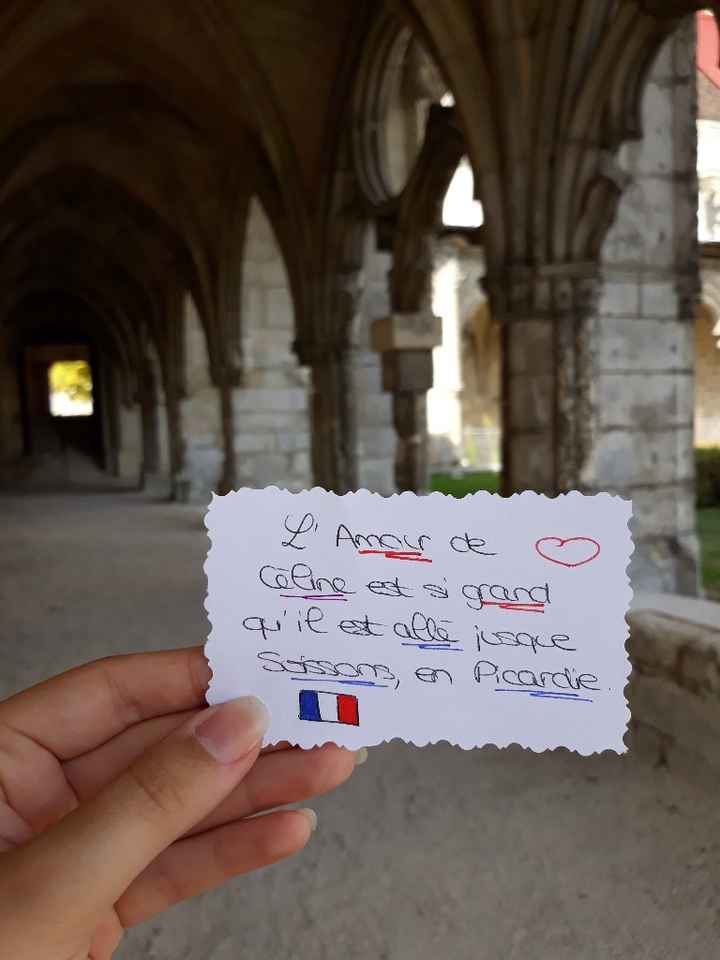 L'Amour de
Céline est si grand
qu'il est allé jusque
Soissons, en Picardie.